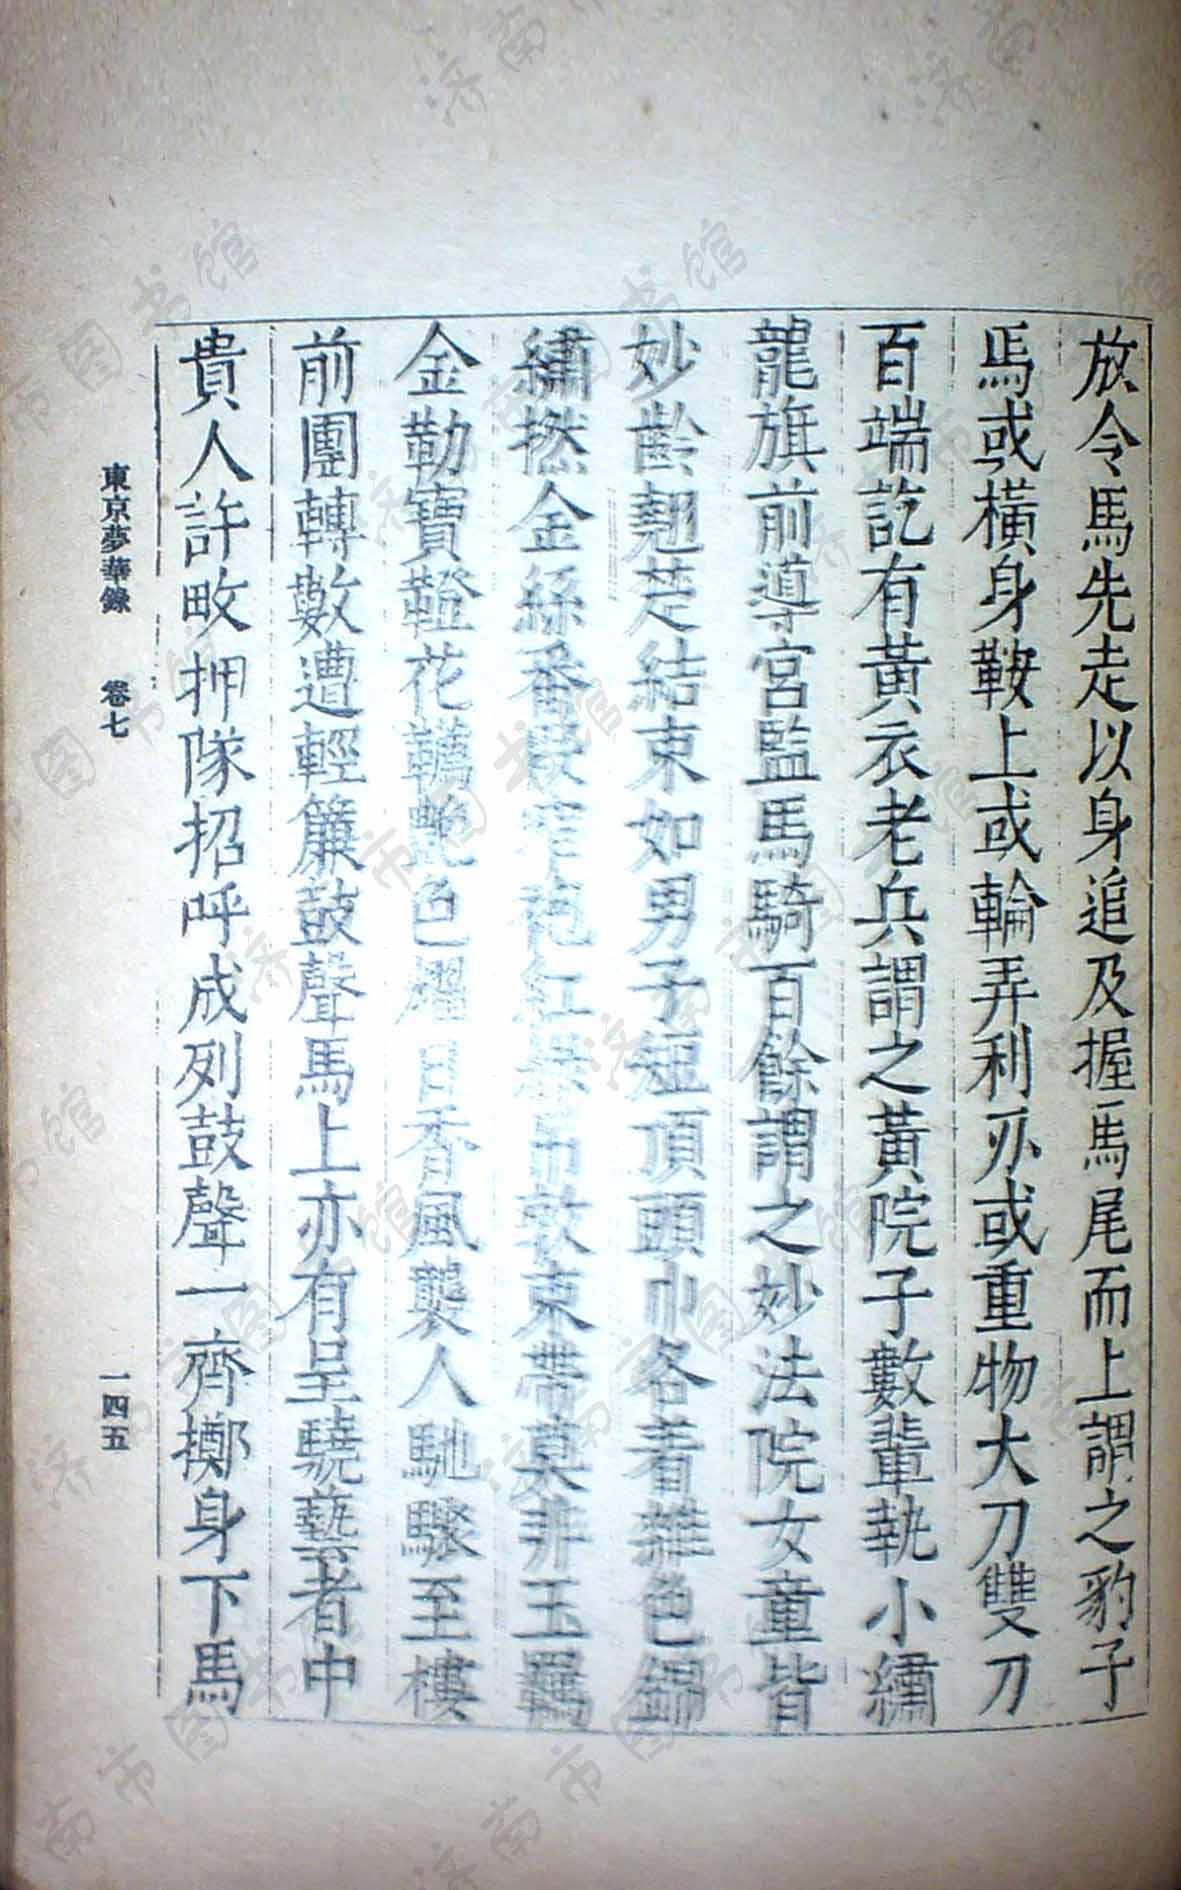 放令馬先走以身追及握馬尾而上謂之豹子
馬或橫身鞍上或輪弄利刃或重物大刀雙刀
百端訖有黃衣老兵謂之黃院子數輩執小繡
龍旗前導宮監馬騎百餘謂之妙法院女童皆
妙齡翹楚結束如男子短頂頭巾各着雜色錦
繡撚金絲番段窄袍紅綠吊敦束帶莫非玉羈
金勒寶鞾花韉艶色耀目香風襲人馳驟至樓
前團轉數遭輕簾鼓聲馬上亦有呈驍藝者中
貴人許畋押隊招呼成列鼓聲一齊擲身下馬
東京夢華錄 卷七 一四五
济南市图书馆